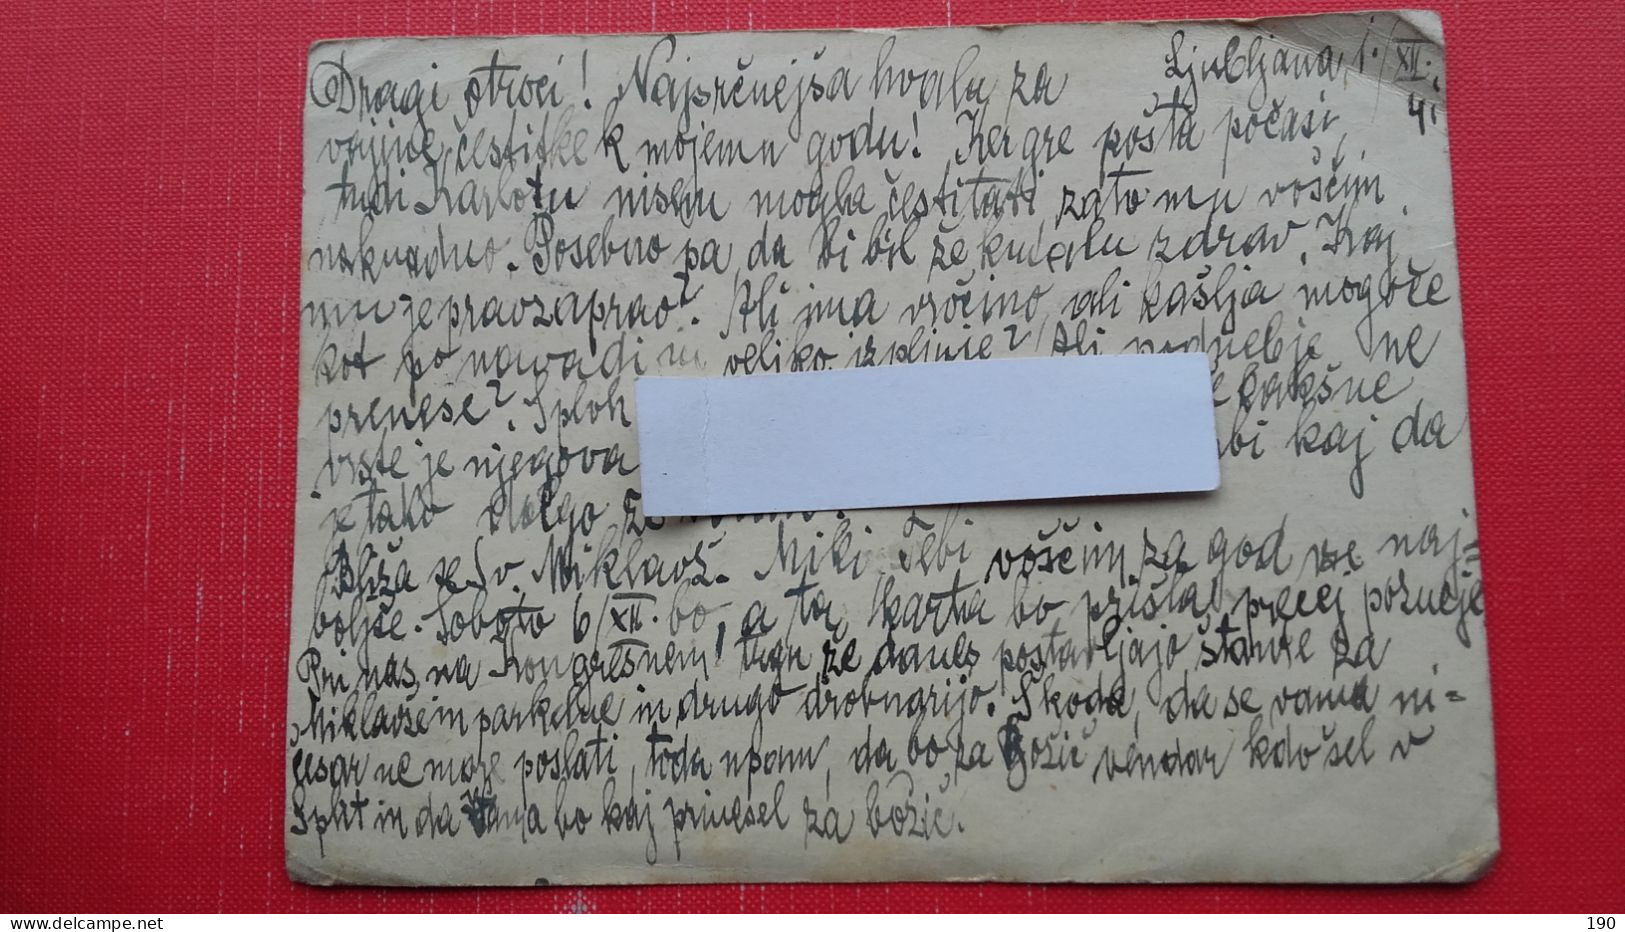 Ljubljana, 1./XII.
41
Dragi otroci! Najsrčnejša hvala za
čestitke k mojemu godu! Ker gre pošta počasi,
tudi Karlotu nisem mogla čestitati, zato mu voščim
naknadno. Posebno pa, da bi bil že kmalu zdrav. Kaj
mu je pravzaprav? Ali ima vročino, ali kašlja mogoče
kot po navadi in veliko izpljuje? Ali podnebje ne
prenese? Sploh kakšne
vrste je njegova kaj da
je tako dolgo
Bliža se Sv. Miklavž. Miki, Tebi voščim za god vse naj=
boljše. Soboto 6/XII. bo, a ta karta bo prišla precej pozneje
Pri nas, na Kongresnem trgu že danes postavljajo štante za
Miklavže in parkelne in drugo drobnarijo. Škoda, da se vama ni=
česar ne more poslati, toda upam, da bo za Božič vendar kdo šel v
Split in da vama bo kaj prinesel za božič.
delcampe.net
190